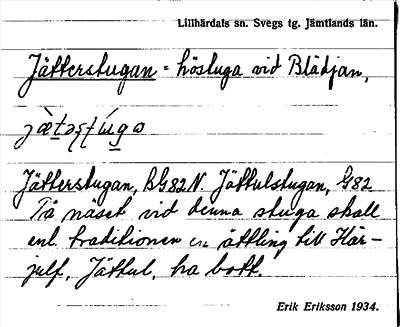 Lillhärdals sn. Svegs tg. Jämtlands län.
Jätterstugan = höstuga vid Blädjan,
Jätterstugan, BG82N. Jättulstugan, G82
På näset vid denna stuga skall
enl. traditionen en ättling till Här-
julf, Jättul, ha bott.
Erik Eriksson 1934.